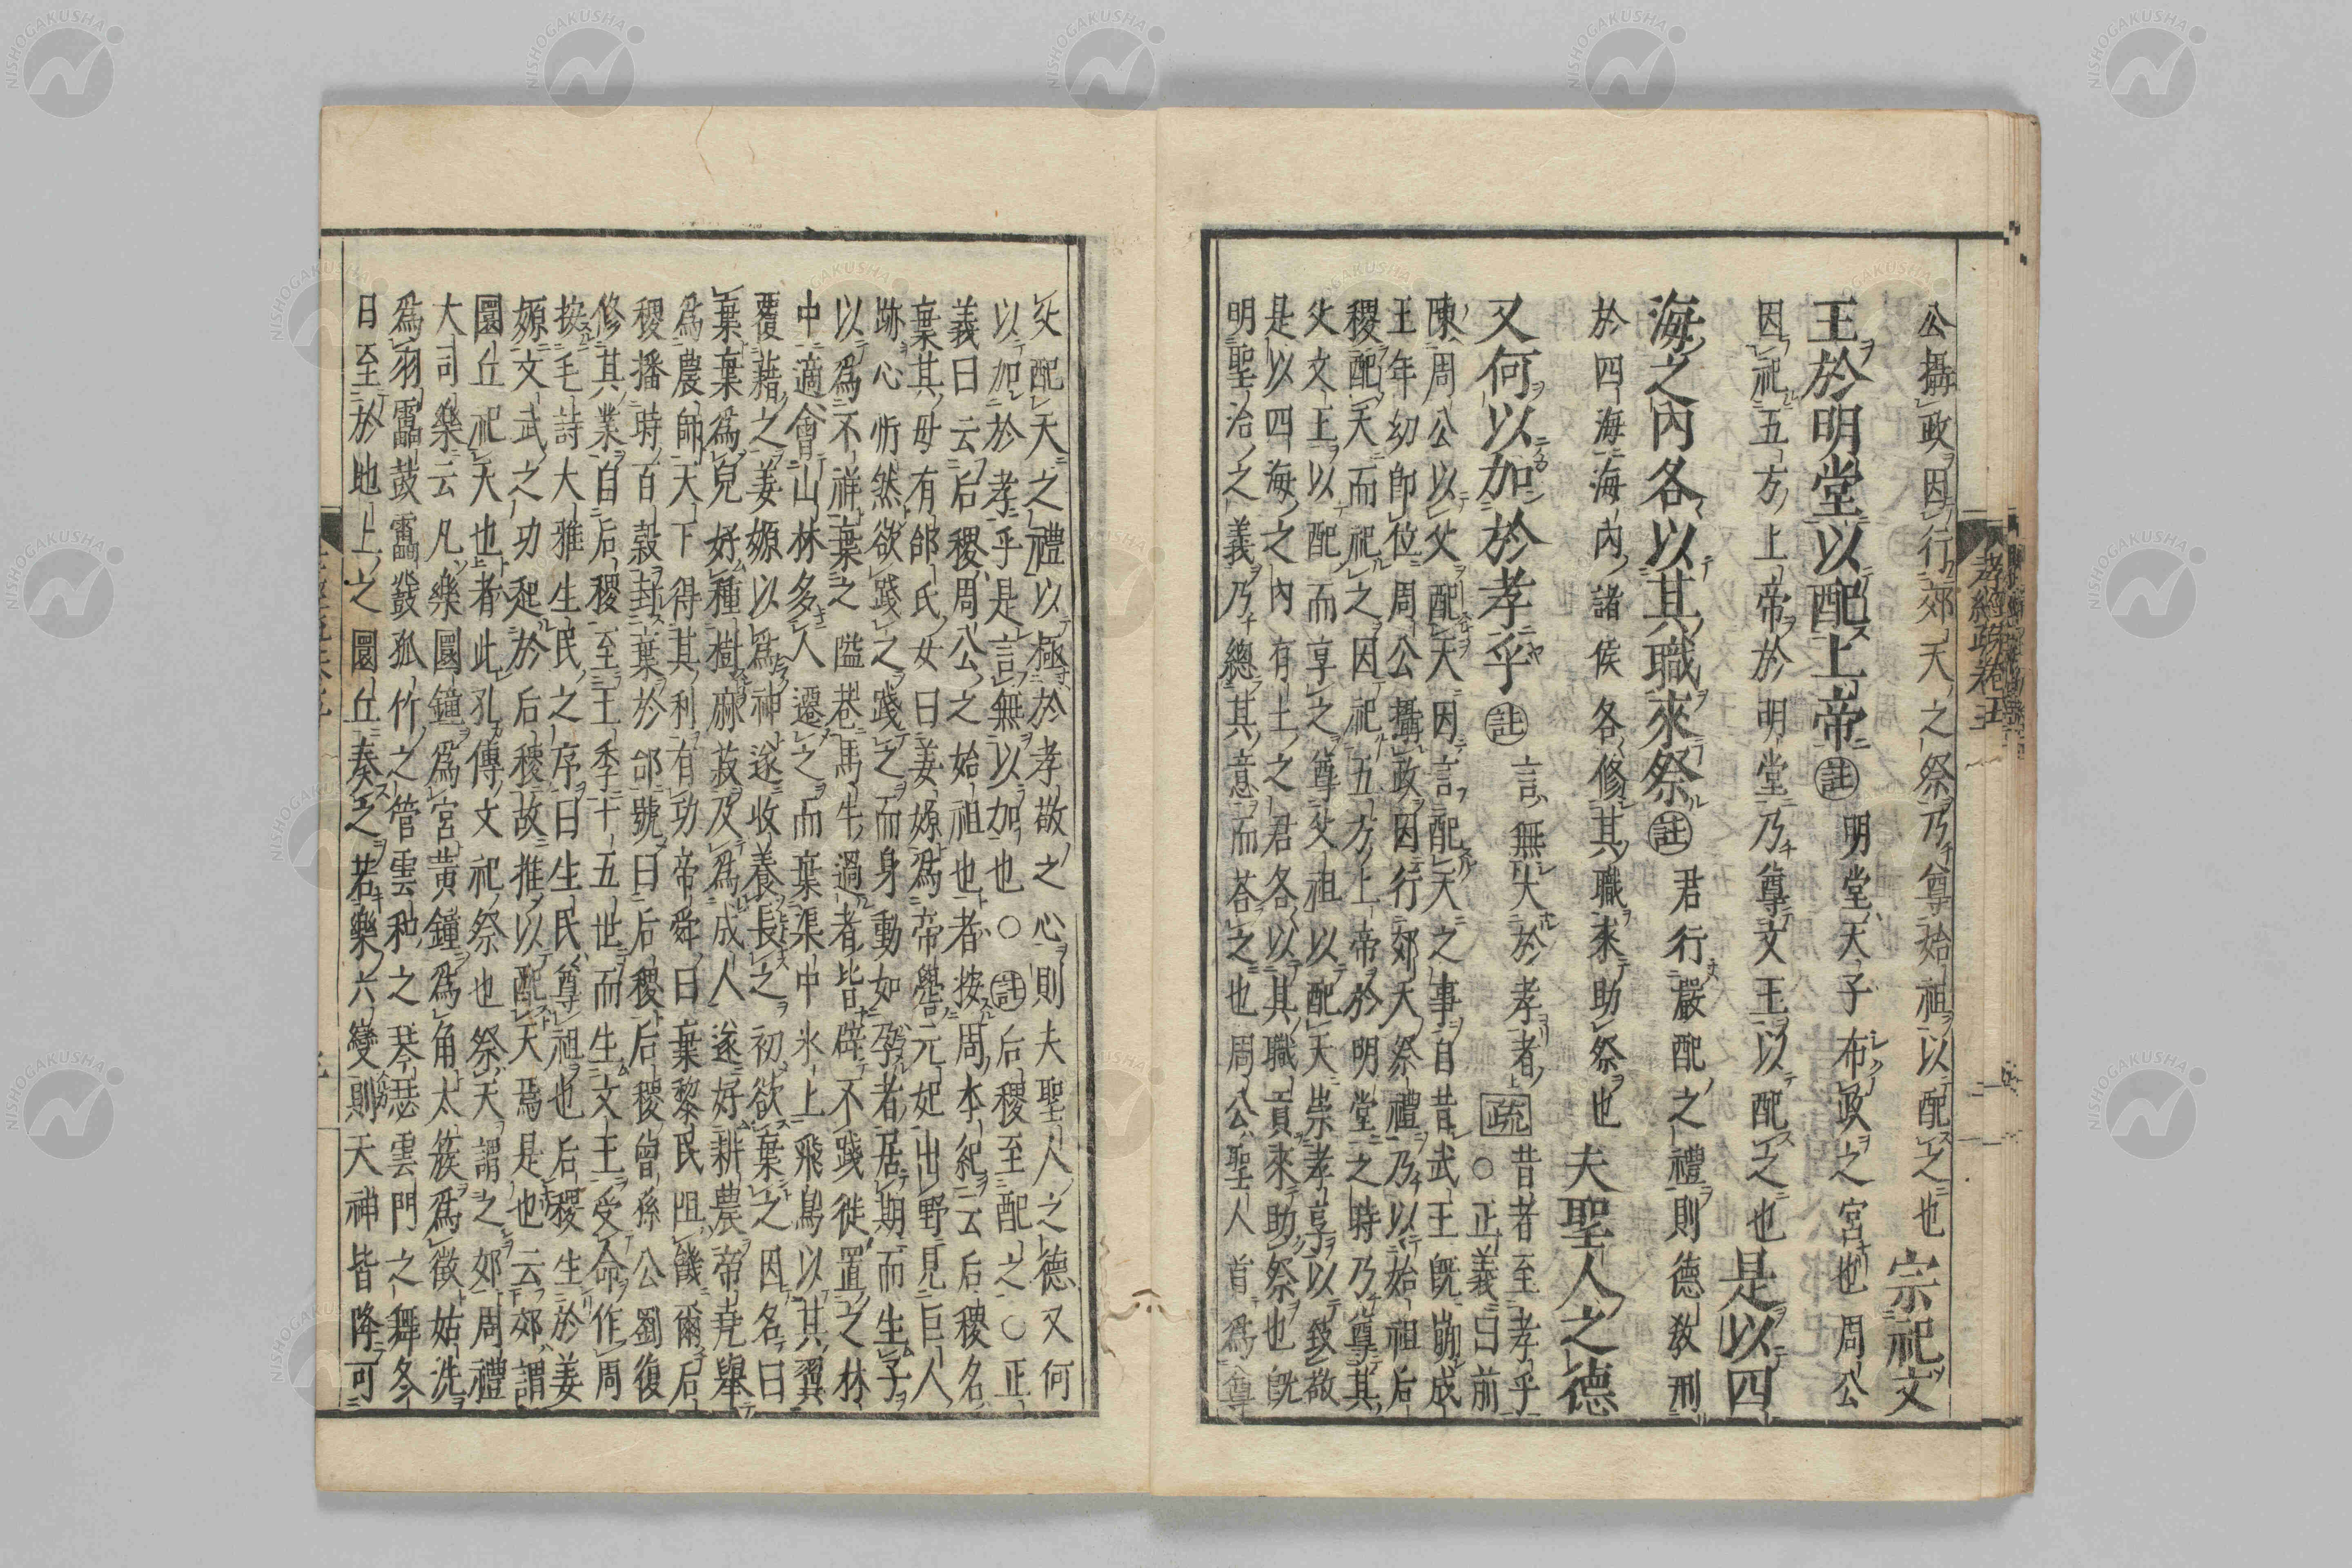 公攝政因行郊天之祭乃尊始祖以配之也
宗祀文
王於明堂以配上帝
註
明堂天子布政之宮也周公
因祀五方上帝於明堂乃尊文王以配之也
是以四
海之內各以其職來祭
註
君行嚴配之禮則德敎刑
於四海海內諸侯各修其職來助祭也
夫聖人之德
又何以加於孝乎
註
言無大於孝者
疏
昔者至孝乎
○正義曰前
陳周公以父配天因言配天之事自昔武王旣崩成
王年幼卽位周公攝政因行郊天祭禮乃以始祖后
稷配天而祀之因祀五方上帝於明堂之時乃尊其
父文王以配而享之尊父祖以配天崇孝享以致敬
是以四海之內有土之君各以其職貢來助祭也旣
明聖治之義乃總其意而荅之也周公聖人首爲尊
父配天之禮以極於孝敬之心則夫聖人之德又何
以加於孝乎是言無以加也○註后稷至配之○正
義曰云后稷周公之始祖也者按周本紀云后稷名
棄其母有邰氏女曰姜嫄爲帝嚳元妃出野見巨人
跡心忻然欲踐之踐之而身動如孕者居期而生子
以爲不祥棄之隘巷馬牛過者皆辟不踐徙置之林
中適會山林多人遷之而棄渠中氷上飛鳥以其翼
覆藉之姜嫄以爲神遂收養長之初欲棄之因名曰
棄棄爲兒好種樹麻菽及爲成人遂好耕農帝堯舉
爲農師天下得其利有功帝舜曰棄黎民阻饑爾后
稷播時百穀封棄於邰號曰后稷后稷曾孫公劉復
修其業自后稷至王季十五世而生文王受命作周
按毛詩大雅生民之序曰生民尊祖也后稷生於姜
嫄文武之功起於后稷故推以配天焉是也云郊謂
圜丘祀天也者此孔傳文祀祭也祭天謂之郊周禮
大司樂云凡樂圜鐘爲宮黃鐘爲角太蔟爲徵姑洗
爲羽靁鼓靁鼗孤竹之管雲和之琴瑟雲門之舞冬
日至於地上之圜丘奏之若樂六變則天神皆降可
孝經疏卷五